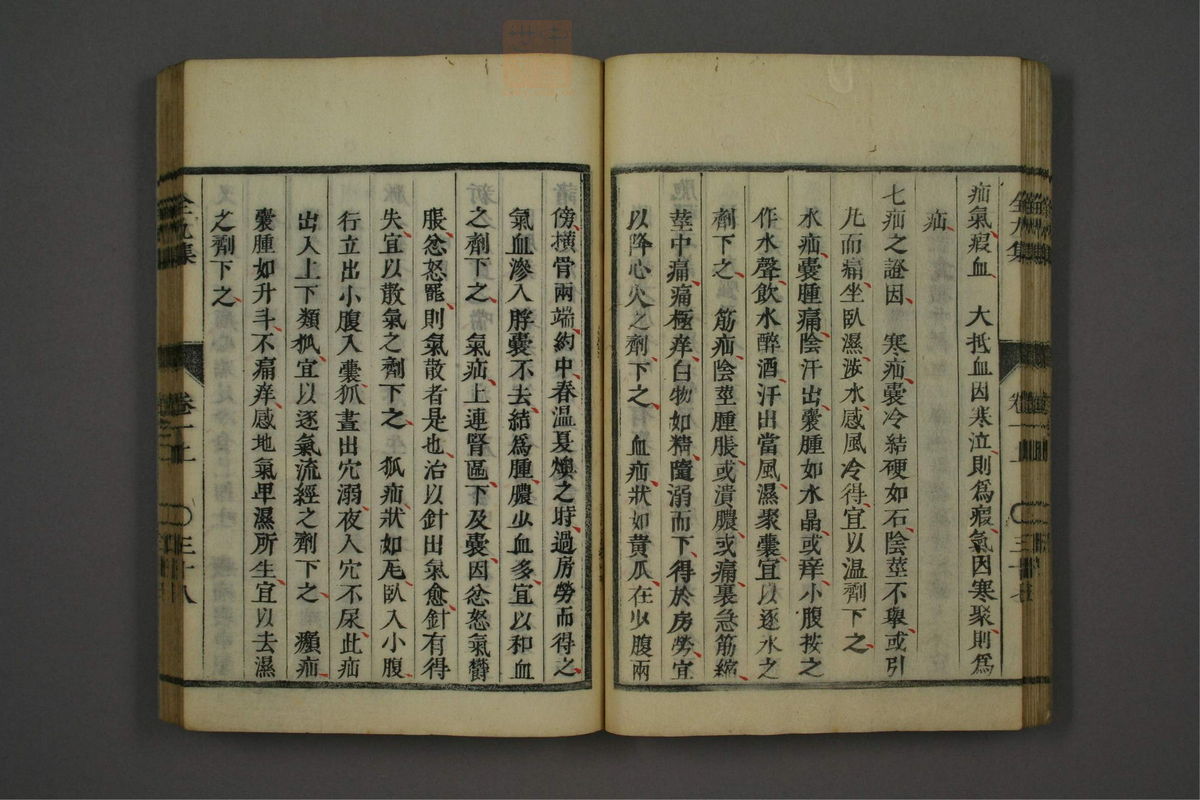 疝氣瘕血 大抵血因寒泣則爲瘕氣因寒聚則爲
疝
七疝之證因 寒疝囊冷結硬如石陰莖不擧或引
尣而痛坐臥濕涉水感風冷得宜以温劑下之
水疝囊腫痛陰汗出囊腫如水晶或痒小腹按之
作水聲飮水醉酒汗出當風濕聚囊宜以逐水之
劑下之 筋疝陰莖腫脹或潰膿或痛裏急筋縮
莖中痛痛極痒白物如精隨溺而下得於房勞宜
以降心火之劑下之 血疝狀如黄瓜在少腹兩
傍橫骨兩端約中春温夏燠之時過房勞而得之
氣血滲入脬囊不去結爲腫膿少血多宜以和血
之劑下之 氣疝上連腎區下及囊因忿怒氣欝
脹忿怒罷則氣散者是也治以針出氣愈針有得
失宜以散氣之劑下之 狐疝狀如瓦臥入小腹
行立出小腹入囊狐晝出穴溺夜入穴不尿此疝
出入上下類狐宜以逐氣流經之劑下之 㿗疝
囊腫如升斗不痛痒感地氣卑濕所生宜以去濕
之劑下之
全九集 卷一上 三十八